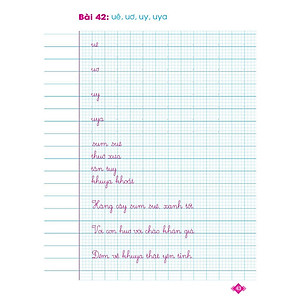 Bài 42: uê, uơ, uy, uya
uê
uơ
uy
uya
sum suê
thuở xưa
tàn tuy
khuya khoắt
Hàng cây sum suê, xanh tốt.
Voi con huơ vòi chào khán giả.
Đêm về khuya thật yên tĩnh.